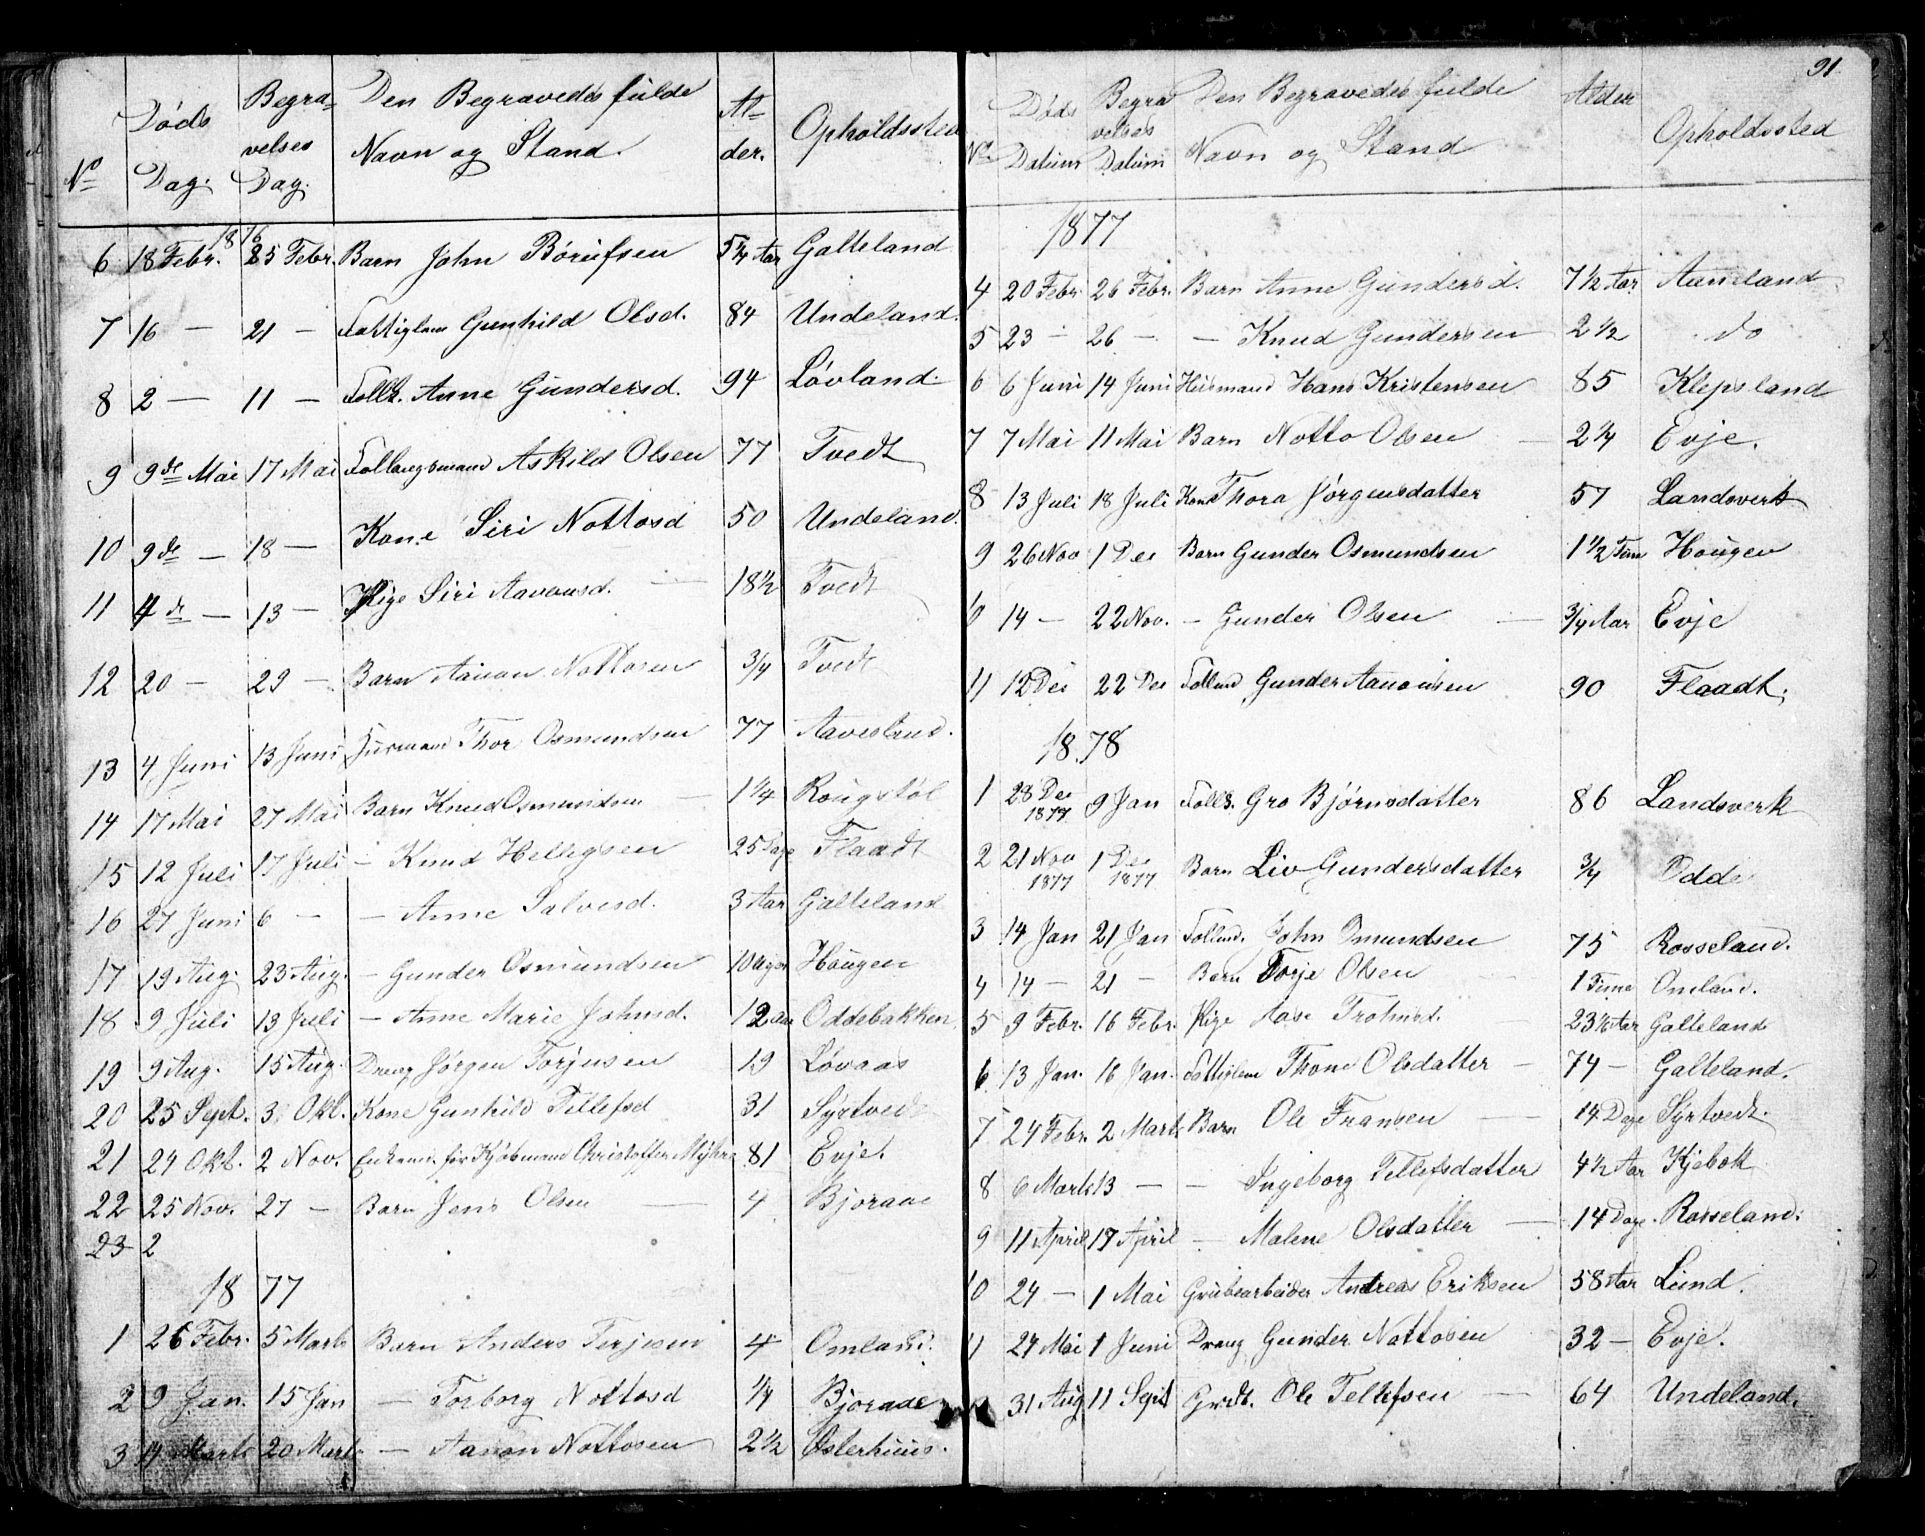 No Døds Dag. Begravelses Dag. Den Begravedes fulde Navn og Stand. Alder. Opholdssted
1876
6 18 Febr. 25 Febr. Barn John Børufsen 5 1/4 Aar Galteland
7 16 — 21 — Fattiglem Gunhild Olsd. 84 Undeland.
8 2 — 11 — Folk. Anne Gundersd. 94 Løvland.
9 9de Mai 17 Mai Askild Olsen 77 Tvedt
10 9de — 18 — Kone Siri Nottosd 50 Undeland.
11 4de — 13 — Pige Siri Aavonsd. — 18 1/2 Tvedt
12 20 — 29 — Barn Aanon Nottosen 3/4 Tvedt
13 4 Juni 13 Juni Husmand Thor Osmundsen 77 Aavestrud.
14 17 Mai 27 Mai Barn Knud Osmundsen — 1 1/4 Rougstøl
15 12 Juli 17 Juli — Knud Helligsen 25 Dage Flaadt
16 27 Juni 6 — — Anne Salvesd. 3 Aar Galteland
17 19 Aug. 23 Aug. — Gunder Osmundsen 10 Uger Hougen
18 9 Juli 13 Juli — Anne Marie Johnsd. 12 Aar Oddebakken
19 9 Aug. 15 Aug. Dreng Jørgen Torjusen 19 Løvaas
20 25 Sept. 3 Okt. Kone Gunhild Tellefsd 31 Syrtvedt
21 24 Okt. 2 Nov. Enkem. før Kjøbmand Christoffer Myhre 81 Evje.
22 25 Nov. 27 — Barn Jens Olsen — 4 Bjoraae
23 2
1877
1 26 Febr. 5 Marts Barn Anders Terjesen 4 Omland.
2 9 Jan. 15 Jan — Torborg Nottosd 1/4 Bjoraae
3 14 Marts 20 Marts — Aanon Nottosen 2 1/2 Østerhuus.
91.
No. Døds Datum Begravelses Datum Den Begravedes fulde Navn og Stand Alder Opholdssted
1877
4 20 Febr. 26 Febr. Barn Anne Gundersd. 7 1/2 Aar Aaneland
5 23 — 26 — — Knud Gundersen 2 1/2 do
6 6 Juni 14 Juni Husmand Hans Kristensen 85 Klepsland
7 7 Mai 11 Mai Barn Notto Olsen — 2 1/4 Evje.
8 13 Juli 18 Juli Kone Thora Jørgensdatter 57 Landsverk
9 26 Nov 1 Dec Barn Gunder Osmundsen 1 1/2 Time Hougen
10 14 — 22 Nov. — Gunder Olsen — 3/4 Aar Evje
11 12 Dec 22 Dec Follmd Gunder Aanonsen 90 Flaadt.
1878
1 28 Dec 1877 9 Jan Folk. Gro Bjørnsdatter 86 Landsverk
2 21 Nov 1877 1 Dec 1877 Barn Liv Gundersdatter 3/4 Odde
3 14 Jan 21 Jan Follmd. John Omundsen 75 Rosseland.
4 14 — 21 — Barn Torje Olsen — 1 Time Omland.
5 9 Febr. 16 Febr. Pige Aase Trohnsd. — 23 1/2 Aar Galteland
6 13 Jan. 16 Jan. Fattiglem Thone Olsdatter — 74 — Galteland.
7 24 Febr. 2 Marts Barn Ole Fransen — 14 Dage Syrtvedt.
8 6 Marts 13 — — Ingeborg Tellefsdatter 4 1/2 Aar Kjebok
9 11 April 17 April — Malene Olsdatter — 14 Dage. Rosseland.
10 24 — 1 Mai Grubearbeider Andreas Eriksen 58 Aar Lund.
11 24 Mai 1 Juni Dreng Gunder Nottosen 32 — Evje.
31 Aug 11 Sept Grdb. Ole Tellefsen — 64 Undeland.